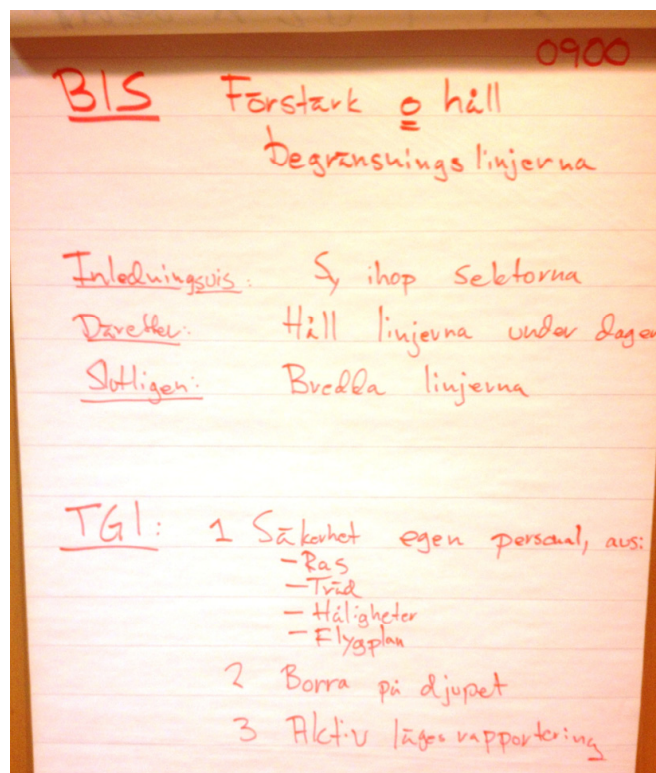 0900
BIS Förstärk o håll
begränsningslinjerna
Inledningsvis: Sy ihop sektorna
Därefter: Håll linjerna under dagen
Slutligen: Bredda linjerna
TGI: 1 Säkerhet egen personal, avs:
- Ras
- Träd
- Håligheter
- Flygplan
2 Borra på djupet
3 Aktiv lägesrapportering